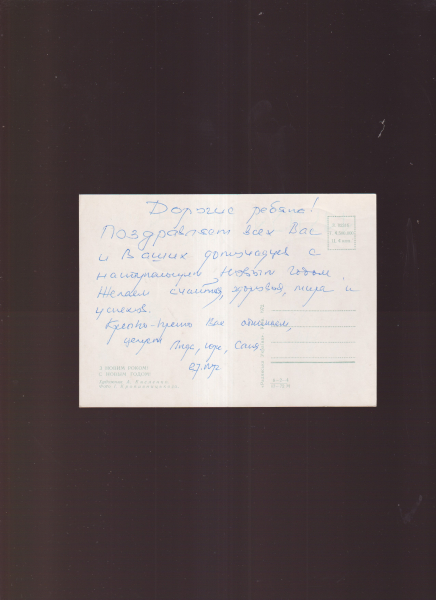 Дорогие ребята!
Поздравляем всех Вас
и Ваших домочадцев с
наступающим Новым Годом.
Желаем счастья, здоровья, мира и
успехов.
Крепко-крепко Вас обнимаем,
целуем Лида, Юра, Саша.
З НОВИМ РОКОМ!
С НОВЫМ ГОДОМ!